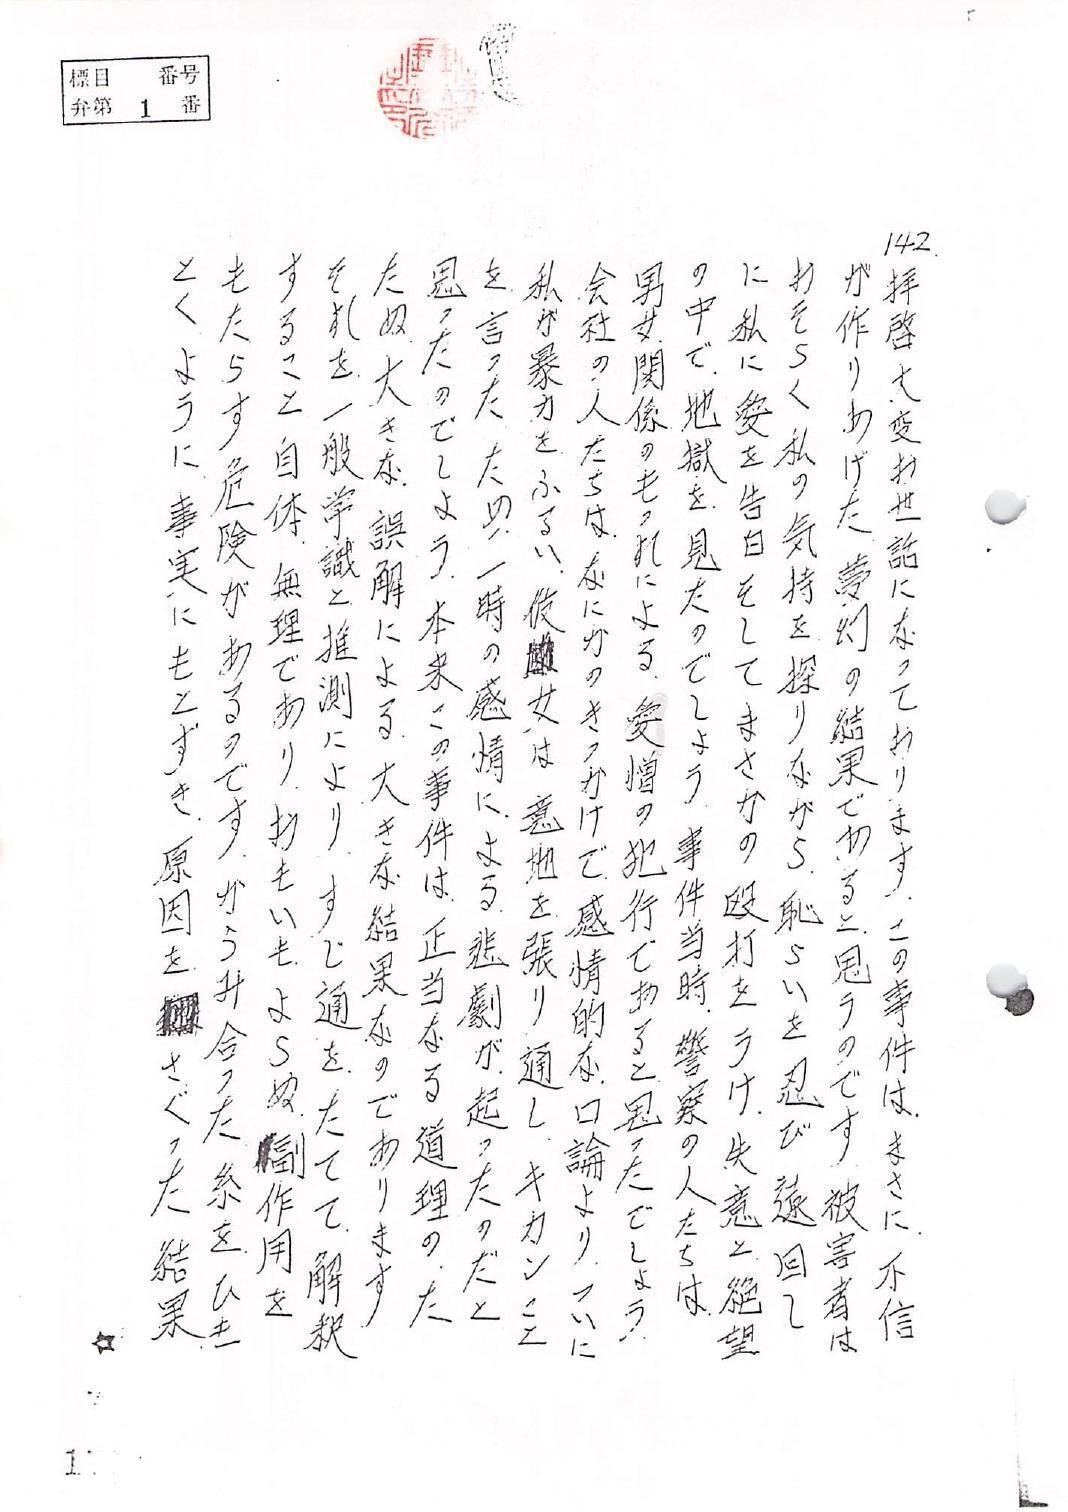 標目　番号
弁第　1　番
142
拝啓大変お世話になっております。この事件は、まさに、不信
が作りあげた夢幻の結果であると、思うのです。被害者は
おそらく私の気持を探りながら、恥らいを忍び遠回し
に私に愛を告白そしてまさかの殴打をうけ、失意と絶望
の中で、地獄を見たのでしょう。事件当時、警察の人たちは、
男女関係のもつれによる、愛憎の犯行であると思ったでしょう。
会社の人たちは、なにかのきっかけで、感情的な、口論より、ついに
私が暴力をふるい、彼女は意地を張り通し、キカンこと
を言ったため、一時の感情による悲劇が起ったのだと
思ったのでしよう。本来この事件は、正当なる道理の、た
たぬ、大きな誤解による大きな結果なのであります
それを、一般学識と推測により、すじ通をたてて、解釈
すること自体、無理であり、おもいも、よらぬ、副作用を
もたらす危険があるのです。からみ合った糸を、ひも
とくように、事実にもとずき、原因をさぐった結果
1